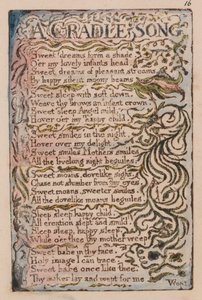 16
A CRADLE SONG
Sweet dreams form a shade
O'er my lovely infants head
Sweet dreams of pleasant streams
By happy silent moony beams
Sweet sleep with soft down
Weave thy brows an infant crown
Sweet sleep Angel mild
Hover o'er my happy child
Sweet smiles in the night
Hover over my delight
Sweet smiles Mothers smiles
All the livelong night beguiles
Sweet moans, dovelike sighs
Chase not slumber from thy eyes
Sweet moans, sweeter smiles
All the dovelike moans beguiles
Sleep sleep happy child
All creation slept and smil'd
Sleep sleep, happy sleep
While o'er thee thy mother weep
Sweet babe in thy face
Holy image I can trace
Sweet babe once like thee
Thy maker lay and wept for me
Wept